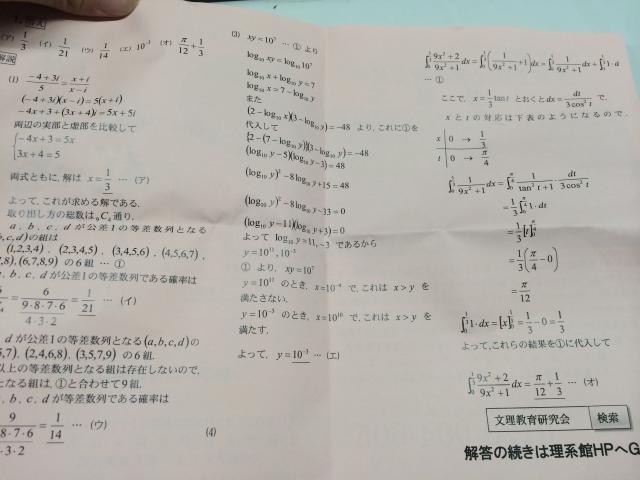 1. 記入
(ア) 1/3 (イ) 1/21 (ウ) 1/14 (エ) 10⁻³ (オ) π/12 + 1/3
解説
(1) (-4+3i)/5 = (x+i)/(x-i)
(-4+3i)(x-i)=5(x+i)
-4x+3+(3x+4)i=5x+5i
両辺の実部と虚部を比較して
{-4x+3=5x
3x+4=5
両式ともに, 解は x=1/3 … (ア)
よって, これが求める解である.
取り出し方の総数は ₉C₄ 通り.
a, b, c, d が公差1の等差数列となる
b,c,d)の組は
(1,2,3,4), (2,3,4,5), (3,4,5,6), (4,5,6,7),
7,8), (6,7,8,9) の6組 … ①
, b, c, d が公差1の等差数列である確率は
= 6/((9·8·7·6)/(4·3·2)) = 1/21 … (イ)
, d が公差1の等差数列となる(a,b,c,d)の
5,7), (2,4,6,8), (3,5,7,9) の6組.
以上の等差数列となる組は存在しないので,
となる組は, ①と合わせて9組.
, b, c, d が等差数列である確率は
9/((9·8·7·6)/(4·3·2)) = 1/14 … (ウ)
(4)
(3) xy=10⁷ … ① より
log₁₀ xy=log₁₀ 10⁷
log₁₀ x+log₁₀ y=7
log₁₀ x=7-log₁₀ y
また
(2-log₁₀ x)(3-log₁₀ y)=-48 より, これに①を
代入して
{2-(7-log₁₀ y)}(3-log₁₀ y)=-48
(log₁₀ y-5)(log₁₀ y-3)=48
(log₁₀ y)²-8log₁₀ y+15=48
(log₁₀ y)²-8log₁₀ y-33=0
(log₁₀ y-11)(log₁₀ y+3)=0
よって log₁₀ y=11,-3 であるから
y=10¹¹,10⁻³
① より, xy=10⁷
y=10¹¹ のとき, x=10⁻⁴ で, これは x>y を
満たさない.
y=10⁻³ のとき, x=10¹⁰ で, これは x>y を
満たす.
よって, y=10⁻³ … (エ)
∫₀^(1/3) (9x²+2)/(9x²+1) dx=∫₀^(1/3) (1/(9x²+1)+1)dx=∫₀^(1/3) 1/(9x²+1) dx+∫₀^(1/3) 1·d
… ①
ここで, x=1/3 tan t とおくと dx=dt/(3cos² t) で,
x と t の対応は下表のようになるので.
x 0 → 1/3
t 0 → π/4
∫₀^(1/3) 1/(9x²+1) dx=∫₀^(π/4) 1/(tan² t+1)·dt/(3cos² t)
=1/3 ∫₀^(π/4) 1·dt
=1/3 [t]₀^(π/4)
=1/3 (π/4-0)
=π/12
∫₀^(1/3) 1·dx=[x]₀^(1/3)=1/3-0=1/3
よって, これらの結果を①に代入して
∫₀^(1/3) (9x²+2)/(9x²+1) dx=π/12+1/3 … (オ)
文理教育研究会 検索
解答の続きは理系館HPへG